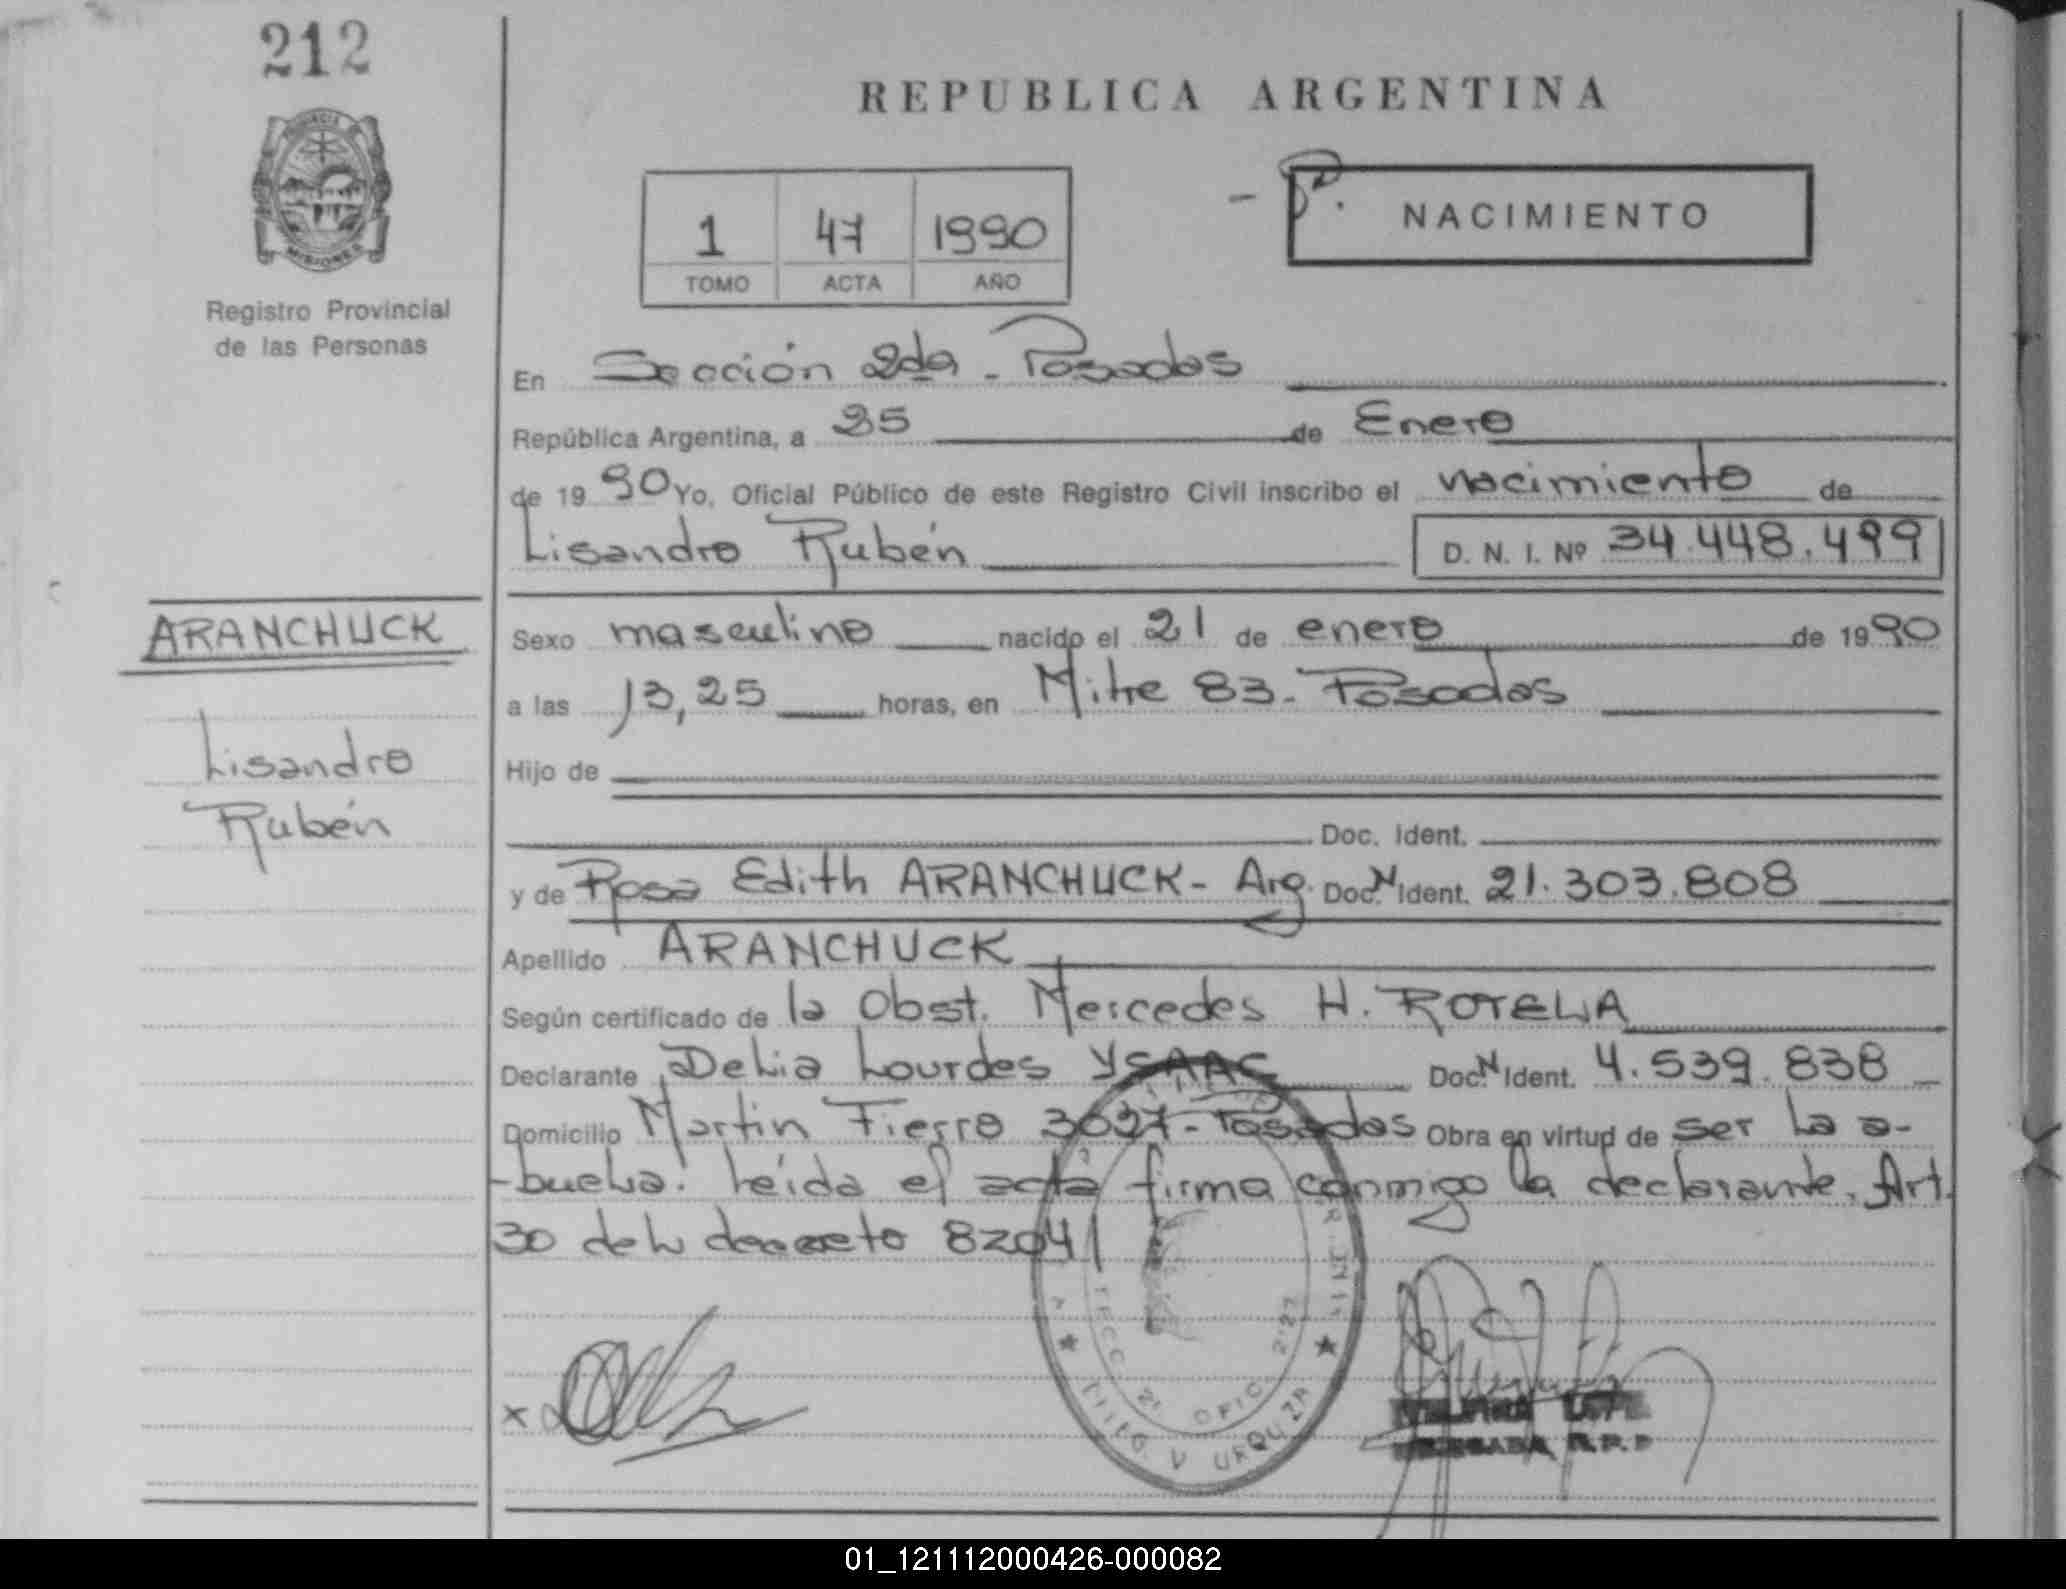 212
REPUBLICA ARGENTINA
NACIMIENTO
1 47 1990
TOMO ACTA AÑO
MISIONES
Registro Provincial
de las Personas
En Sección 2da - Posadas
República Argentina, a 25 de Enero
de 1990 Yo, Oficial Público de este Registro Civil inscribo el nacimiento de
Lisandro Rubén D. N. I. Nº 34.448.499
ARANCHUCK
Lisandro
Rubén
Sexo masculino nacido el 21 de enero de 1990
a las 13,25 horas, en Mitre 83 - Posadas
Hijo de
Doc. Ident.
y de Rosa Edith ARANCHUCK - Arg. Doc. N Ident. 21.303.808
Apellido ARANCHUCK
Según certificado de la Obst. Mercedes H. ROTELLA
Declarante Delia Lourdes YSAAC Doc. N Ident. 4.539.838
Domicilio Martin Fierro - Posadas Obra en virtud de ser la a-
-buela. Leída el acta firma conmigo la declarante. Art.
30 del decreto 8204
x
OFIC.
URQUIZA
R.P.P
01_121112000426-000082